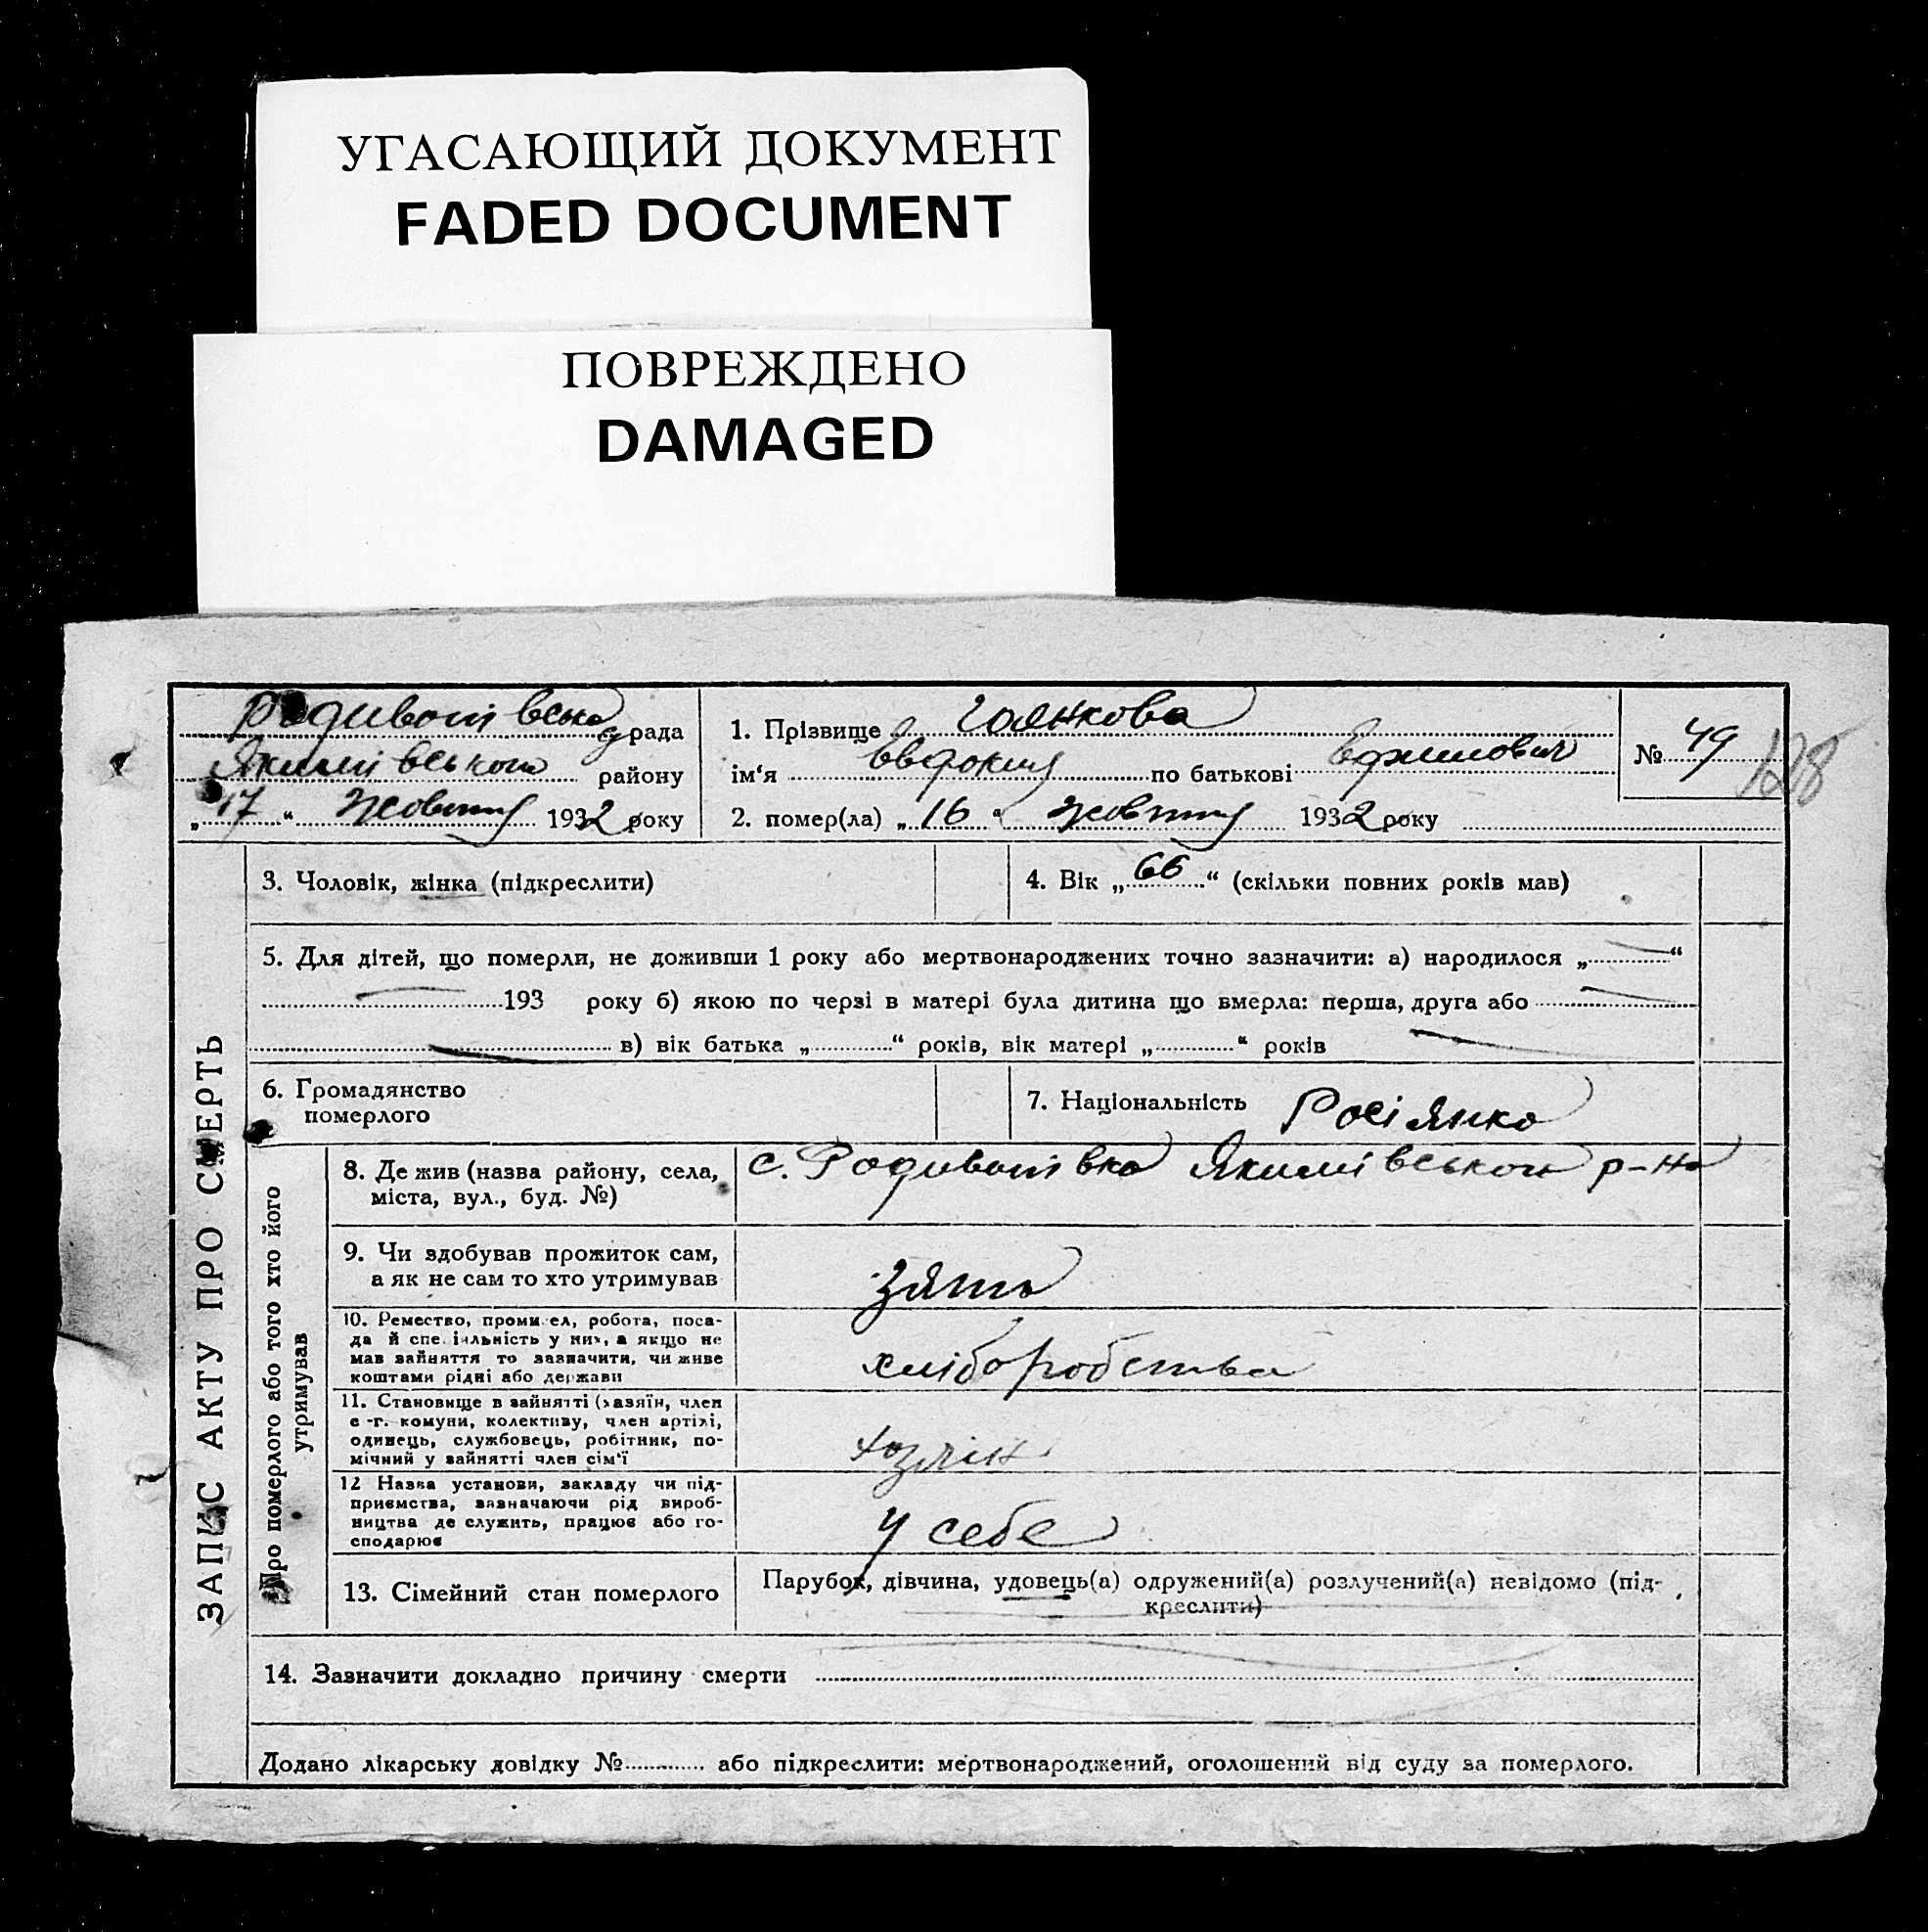 УГАСАЮЩИЙ ДОКУМЕНТ
FADED DOCUMENT
ПОВРЕЖДЕНО
DAMAGED
Родивонівська рада
Якимівського району
„17“ жовтня 1932 року
1. Прізвище
ім‘я Евдокия по батькові Ефимович
2. помер(ла) „16“ жовтня 1932 року
№ 49
128
ЗАПИС АКТУ ПРО СМЕРТЬ
3. Чоловік, жінка (підкреслити)
4. Вік „66“ (скільки повних років мав)
5. Для дітей, що померли, не доживши 1 року або мертвонароджених точно зазначити: а) народилося „—“
— 193 року б) якою по черзі в матері була дитина що вмерла: перша, друга або —
— в) вік батька „ “ років, вік матері „ “ років —
6. Громадянство
померлого
7. Національність Росіянка
Про померлого або того хто його
утримував
8. Де жив (назва району, села,
міста, вул., буд. №)
с. Родивонівка Якимівського р-на
9. Чи здобував прожиток сам,
а як не сам то хто утримував
зять
10. Ремество, промисел, робота, поса-
да й спеціальність у них, а якщо не
мав зайняття то зазначити, чи живе
коштами рідні або держави
хліборобства
11. Становище в зайнятті (хазяїн, член
с-г. комуни, колективу, член артілі,
одинець, службовець, робітник, по-
мічний у зайнятті член сім‘ї
хозяїн
12 Назва установи, закладу чи під-
приємства, зазначаючи рід вироб-
ництва де служить, працює або го-
сподарює
у себе
13. Сімейний стан померлого
Парубок, дівчина, удовець(а) одружений(а) розлучений(а) невідомо (під-
креслити)
14. Зазначити докладно причину смерти
Додано лікарську довідку № або підкреслити: мертвонароджений, оголошений від суду за померлого.